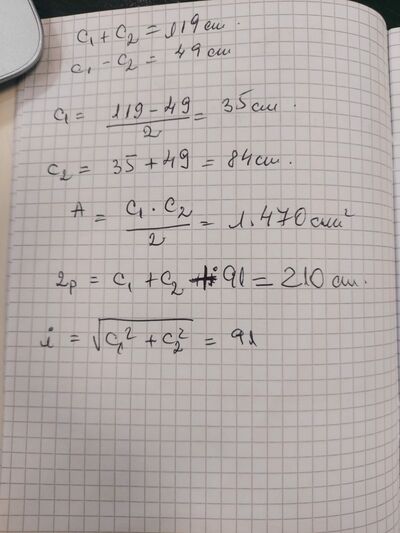 C₁ + C₂ = 119 cm.
C₁ - C₂ = 49 cm
C₁ = (119 - 49)/2 = 35 cm.
C₂ = 35 + 49 = 84 cm.
A = (C₁ · C₂)/2 = 1.470 cm²
2p = C₁ + C₂ + 91 = 210 cm.
i = √(C₁² + C₂²) = 91